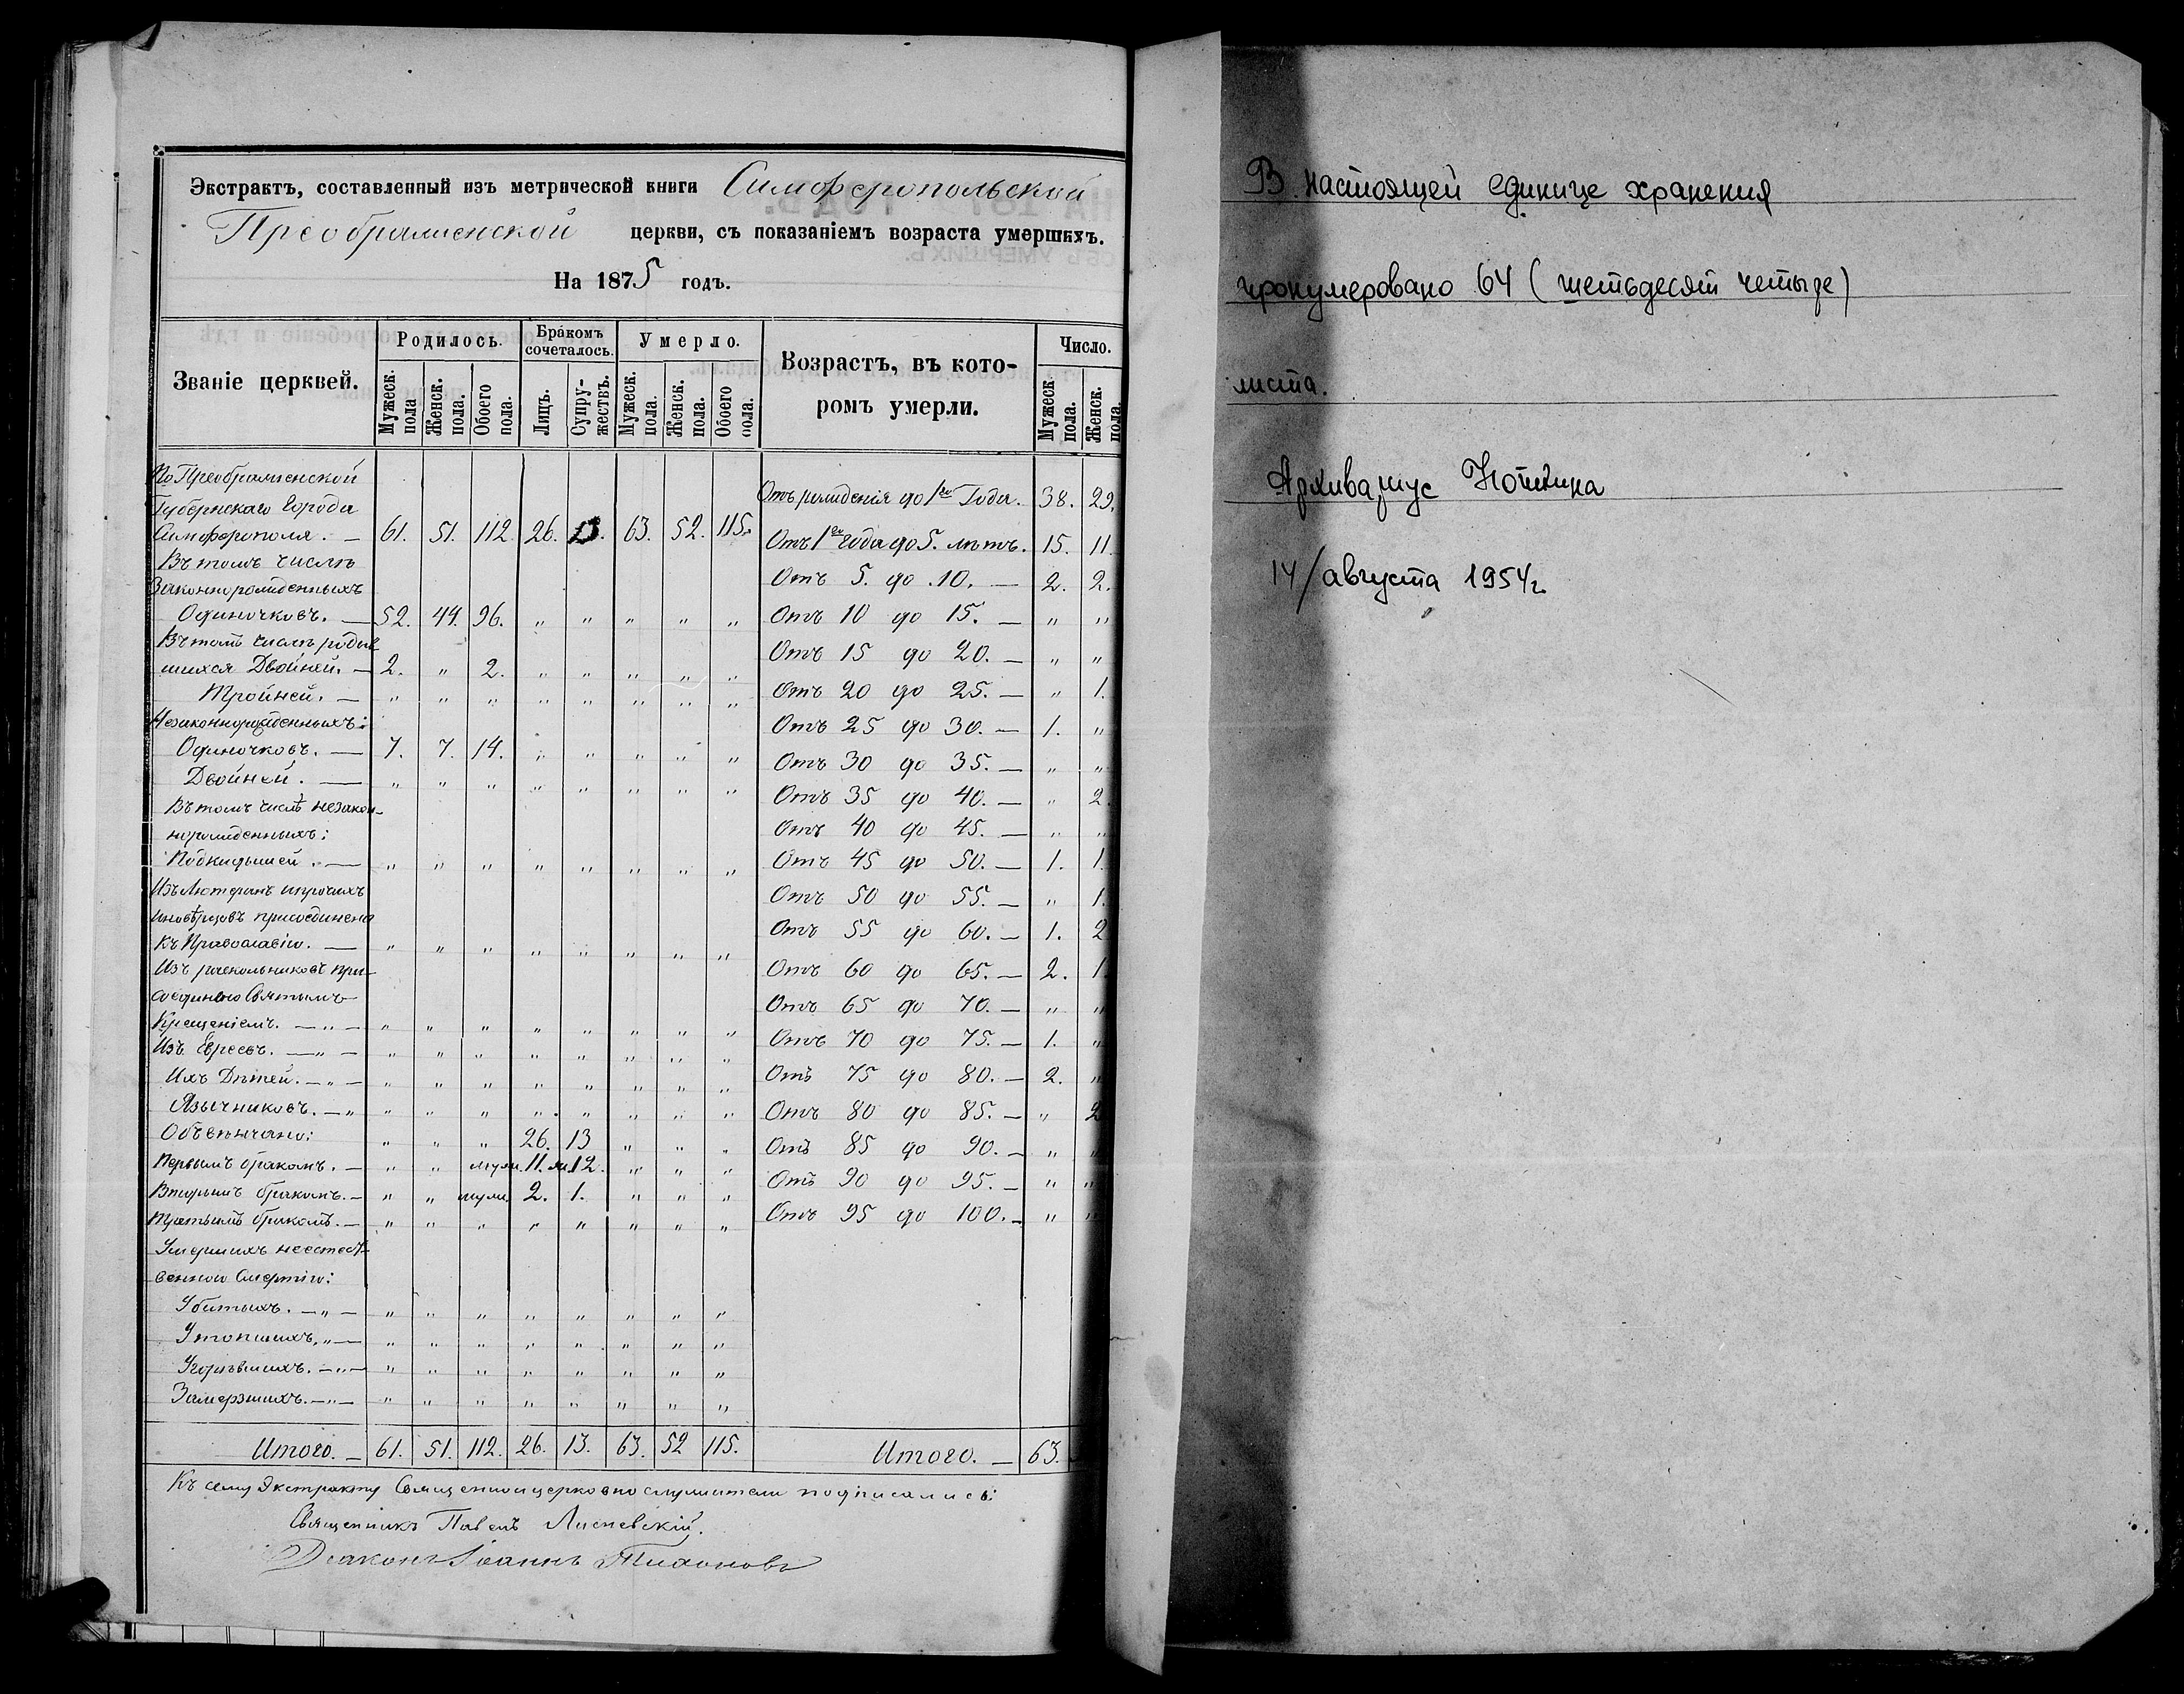 Экстрактъ, составленный изъ метрической книги Симферопольской
Преображенской церкви, съ показаніемъ возраста умершихъ.
На 1875 годъ.
Званіе церквей. Родилось. Бракомъ сочеталось. Умерло. Возрастъ, въ кото- Число.
ромъ умерли.
Мужеск. пола Женск. пола. Обоего пола. Лицъ. Супру-жествъ. Мужеск. пола. Женск. пола. Обоего пола. Мужеск. пола. Женск. пола.
По Преображенской
Губернскаго Города
Симферополя. — 61. 51. 112. 26. 13. 63. 52. 115.
Въ томъ числѣ
Законнорожденныхъ
Одиночковъ. — 52. 44. 96. „ „ „ „ „
Въ томъ числѣ родив
шихся Двойней. — 2. „ 2. „ „ „ „ „
Тройней. — „ „ „ „ „ „ „ „
Незаконнорожденныхъ:
Одиночковъ. — 7. 7. 14. „ „ „ „ „
Двойней. — „ „ „ „ „ „ „ „
Въ томъ числѣ незакон-
норожденныхъ:
Подкидышей. — „ „ „ „ „ „ „ „
Изъ Лютеранъ и прочихъ
иновѣрцовъ присоединено
къ Православію. — „ „ „ „ „ „ „ „
Изъ раскольниковъ при-
соединено Святымъ
Крещеніемъ. — „ — „ „ „ „ „ „ „ „
Изъ Евреевъ. — „ — „ „ „ „ „ „ „ „
Ихъ Дѣтей. — „ — „ „ „ „ „ „ „ „
Язычниковъ. — „ „ „ „ „ „ „ „ „
Обвѣнчано: „ „ „ 26. 13 „ „ „
Первымъ бракомъ. — „ „ муж. 11. ж. 12. „ „ „
Вторымъ бракомъ. — „ „ муж. 2. 1. „ „ „
Третьимъ бракомъ. — „ „ „ „ „ „ „ „
Умершихъ неестест-
венною Смертію:
Убитыхъ. — „ — „ „ „ „ „ „ „ „
Утопшихъ. „ — „ „ „ „ „ „ „ „
Угорѣвшихъ. — „ — „ „ „ „ „ „ „ „
Замерзшихъ. — „ — „ „ „ „ „ „ „ „
Итого. — 61. 51. 112. 26. 13. 63. 52 115.
Отъ рожденія до 1го Года. 38. 29.
Отъ 1го Года до 5. лѣтъ. 15. 11.
Отъ 5. до 10. — 2. 2.
Отъ 10 до 15. — „ „
Отъ 15 до 20. — „ „
Отъ 20 до 25. — „ 1.
Отъ 25 до 30. — 1. „
Отъ 30 до 35. — „ „
Отъ 35 до 40. — „ 2.
Отъ 40 до 45. — „ „
Отъ 45 до 50. — 1. 1.
Отъ 50 до 55. — „ 1.
Отъ 55 до 60. — 1. 2
Отъ 60 до 65. — 2. 1.
Отъ 65 до 70. — „ „
Отъ 70 до 75. — 1. „
Отъ 75 до 80. — 2. „
Отъ 80 до 85. — „ 2
Отъ 85 до 90. — „ „
Отъ 90 до 95. — „ „
Отъ 95 до 100. — „ „
Итого. — 63.
Къ сему Экстракту Священноицерковнослужители подписались:
Священникъ Павелъ
Діаконъ Іоаннъ Тихоновъ
В настоящей единице хранения
пронумеровано 64 (шестьдесят четыре)
листа.
Архивариус
14/августа 1954г.